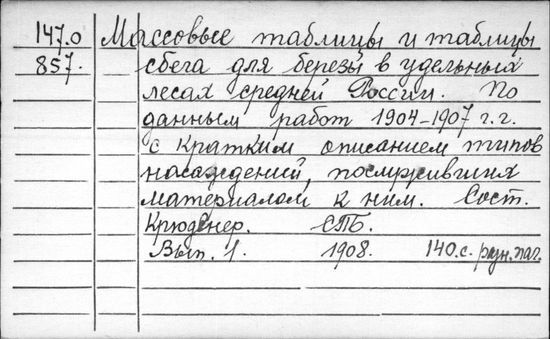 147.0 Массовые таблицы и таблицы
857. сбега для березы в удельных
лесах средней России. По
данным работ 1904-1907 г.г.
с кратким описанием типов
насаждений, послуживших
материалом к ним. Сост.
Крюденер. СПБ.
Вып. 1. 1908. 140.с. разн. паг.